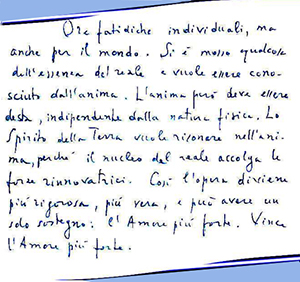 Ore fatidiche individuali, ma
anche per il mondo. Si è mosso qualcosa
dell'essenza del reale e vuole essere cono-
sciuto dall'anima. L'anima però deve essere
desta, indipendente dalla natura fisica. Lo
Spirito della Terra vuole risonare nell'ani-
ma, perché il nucleo del reale accolga le
forze rinnovatrici. Così l'opera diviene
più rigorosa, più vera, e può avere un
solo sostegno: l'Amore più forte. Vince
l'Amore più forte.